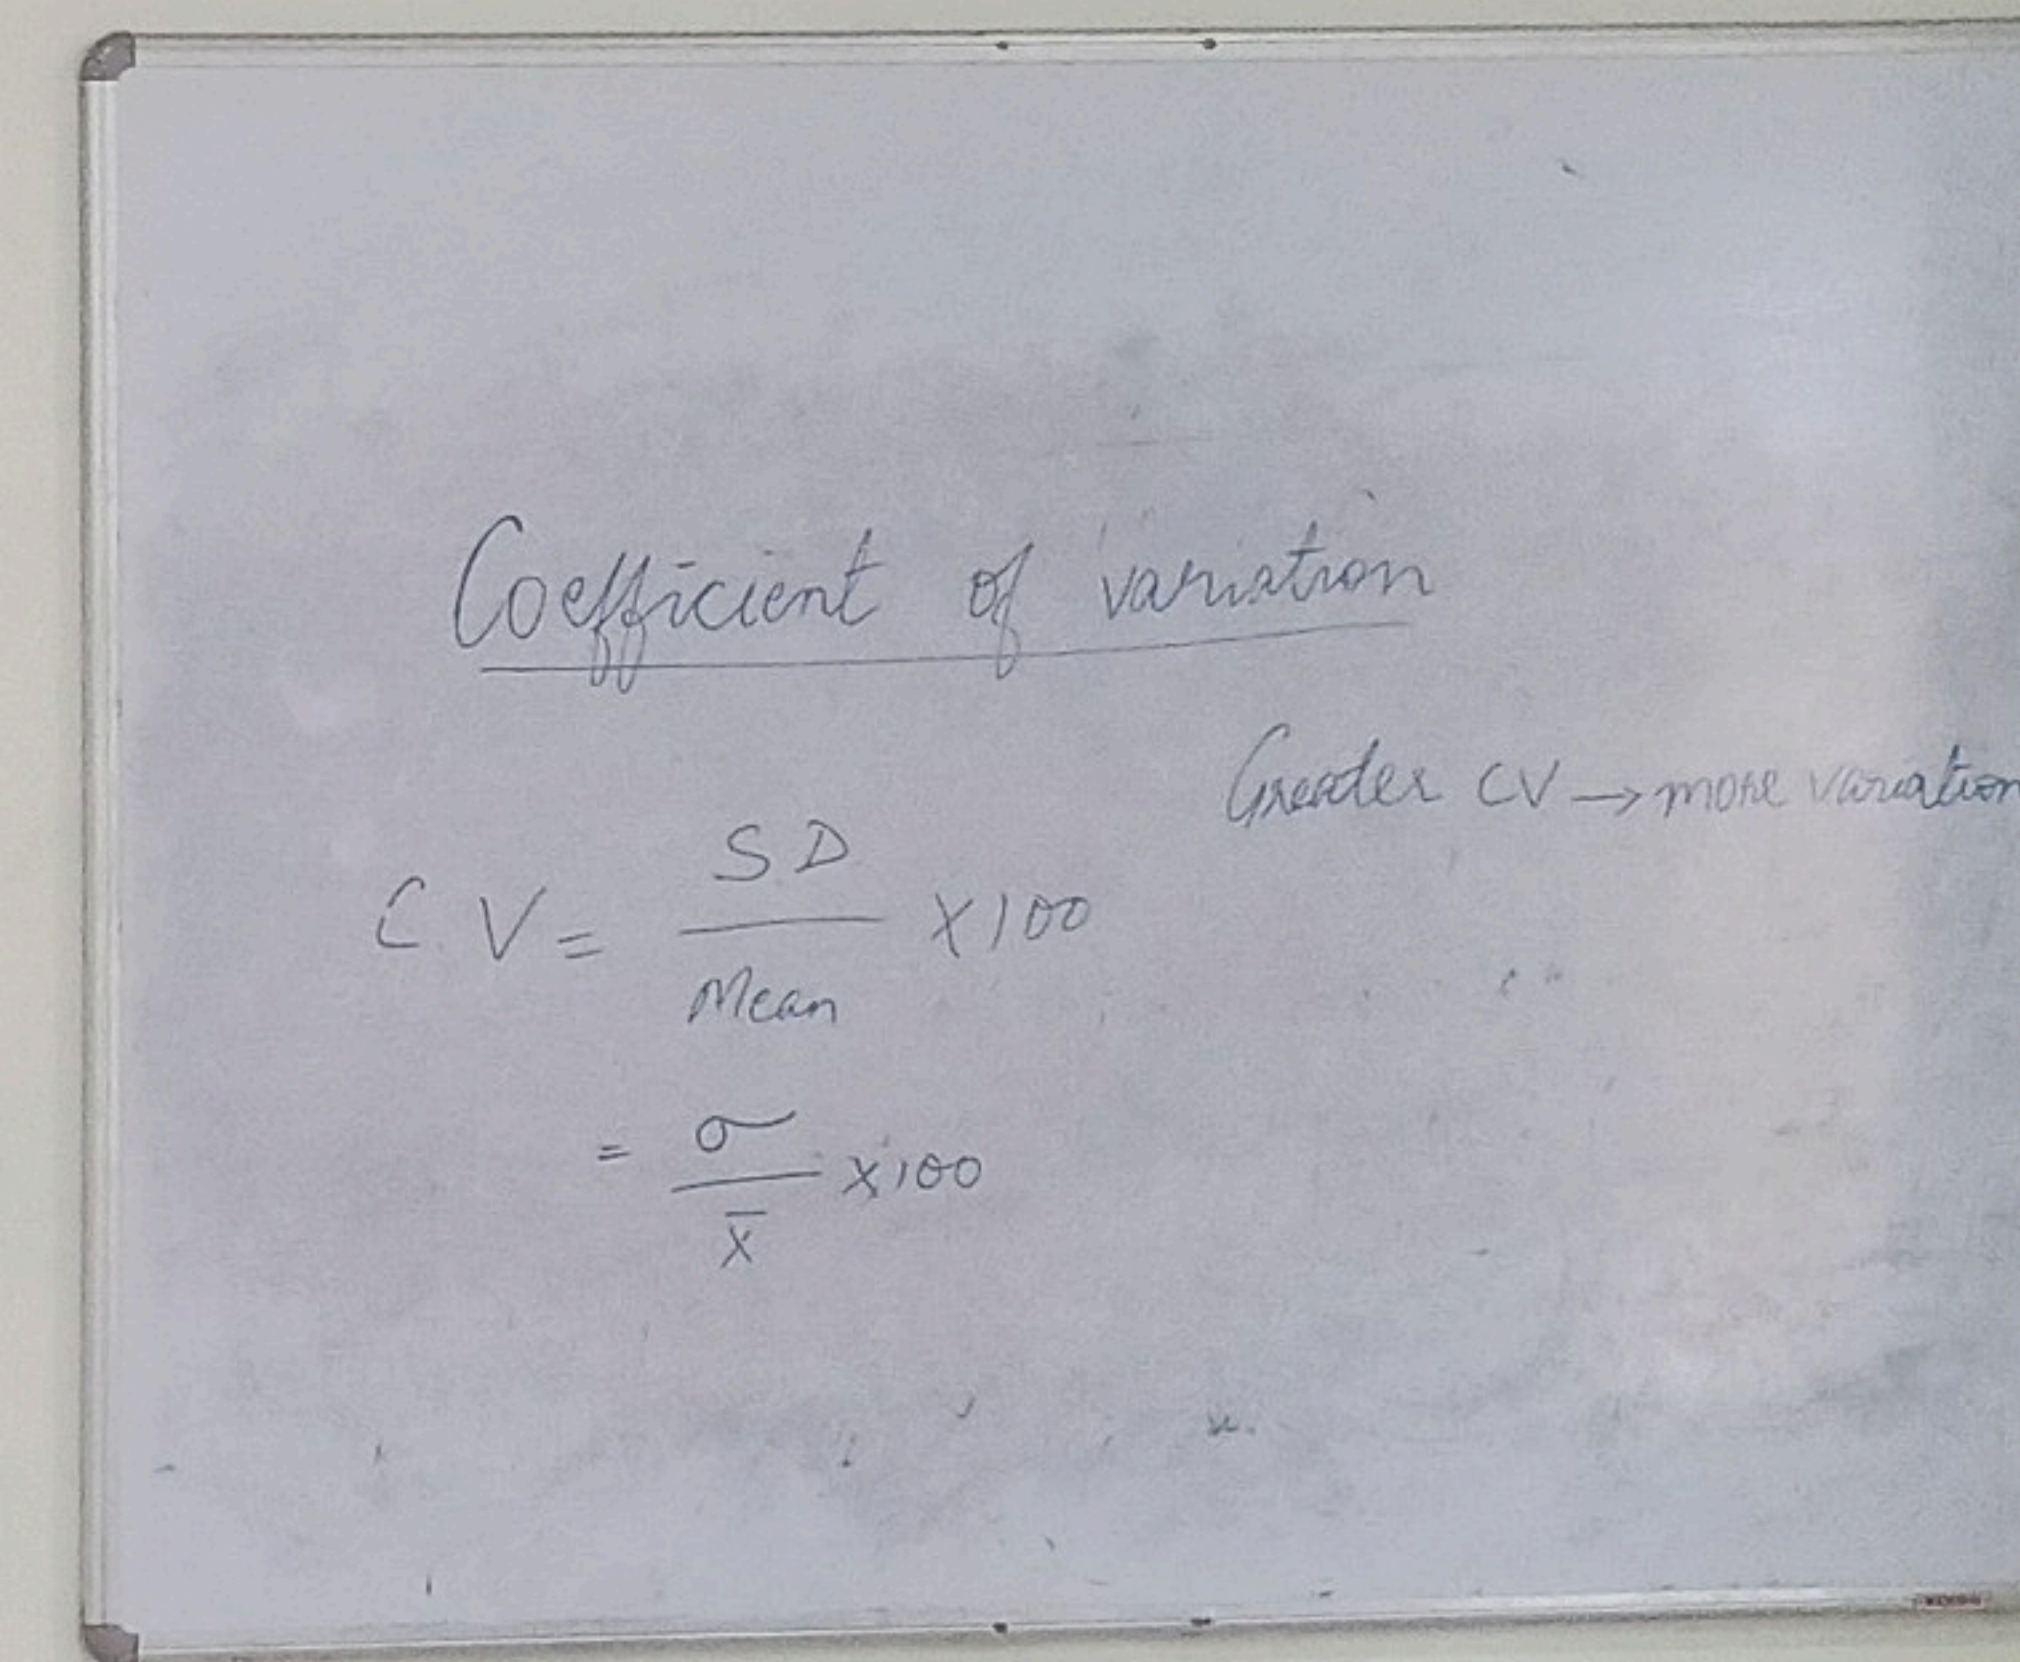 Coefficient of variation
Greater CV → more variation
C.V = SD / Mean × 100
= σ / x̄ × 100